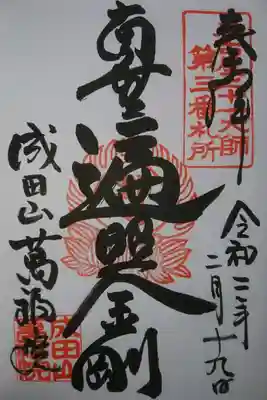 奉拝
大師
第三番札所
令和二年
二月十九日
南無遍照金剛
成田山萬福院
成田山